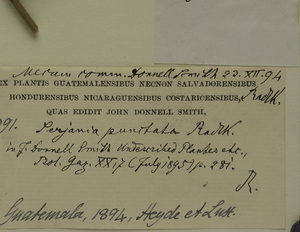 Mecum comm. Donnell Smith 23. XII. 94
EX PLANTIS GUATEMALENSIBUS NECNON SALVADORENSIBUS
HONDURENSIBUS NICARAGUENSIBUS COSTARICENSIBUS, Radlk.
QUAS EDIDIT JOHN DONNELL SMITH,
91.
Serjania punctata Radlk.
in J. Donnell Smith Undescribed Plants etc.,
Bot. Gaz. XX, 7 (July 1895) p. 281.
R.
Guatemala, 1894, Heyde et Lux.